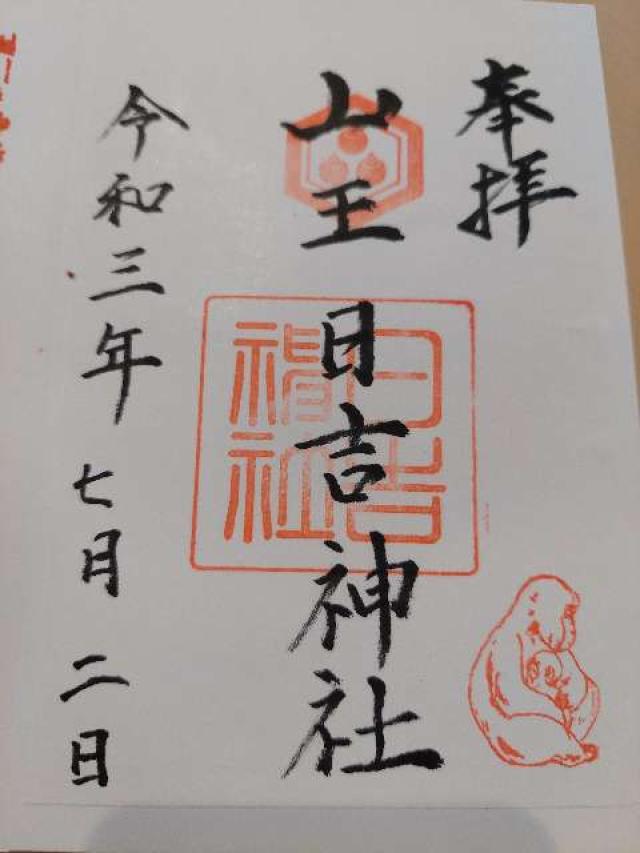 奉拝
山王日吉神社
日吉神社
令和三年七月二日